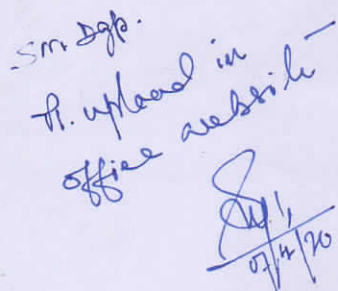 Sm. Dgp.
Pl. upload in
office website
07/4/20